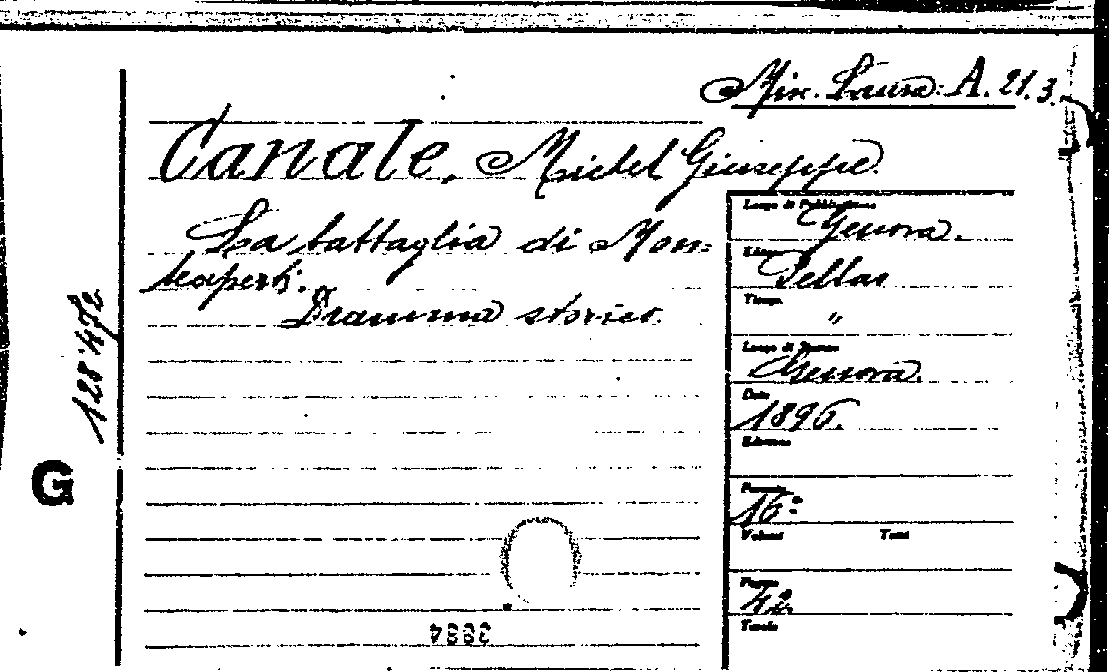 Min. Laura: A. 21.3.
Canale, Michel Giuseppe.
La battaglia di Mon=
teaperti.
Dramma storico.
Luogo di Pubblicazione
Genova.
Pellas
Tipogr.
"
Luogo di Stampa
Genova.
Data
1896.
Edizione
16°
Volumi Tomi
Pagine
42.
Tavole
G
3884